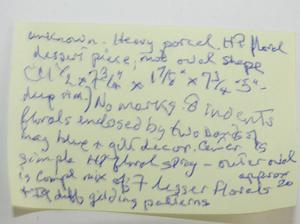 unknown. Heavy porcel. HP floral
dessert piece, mod oval shape
1/2 x 7 3/4" x 1 7/8" x 7 3/4 -5"
deep rim) No marks, 8 indents
florals enclosed by two bands of
blue + gilt decor. Center is
simple HP floral spray - outer oval
is compl mix of 7 lesser florals approx 20
diff gilding patterns